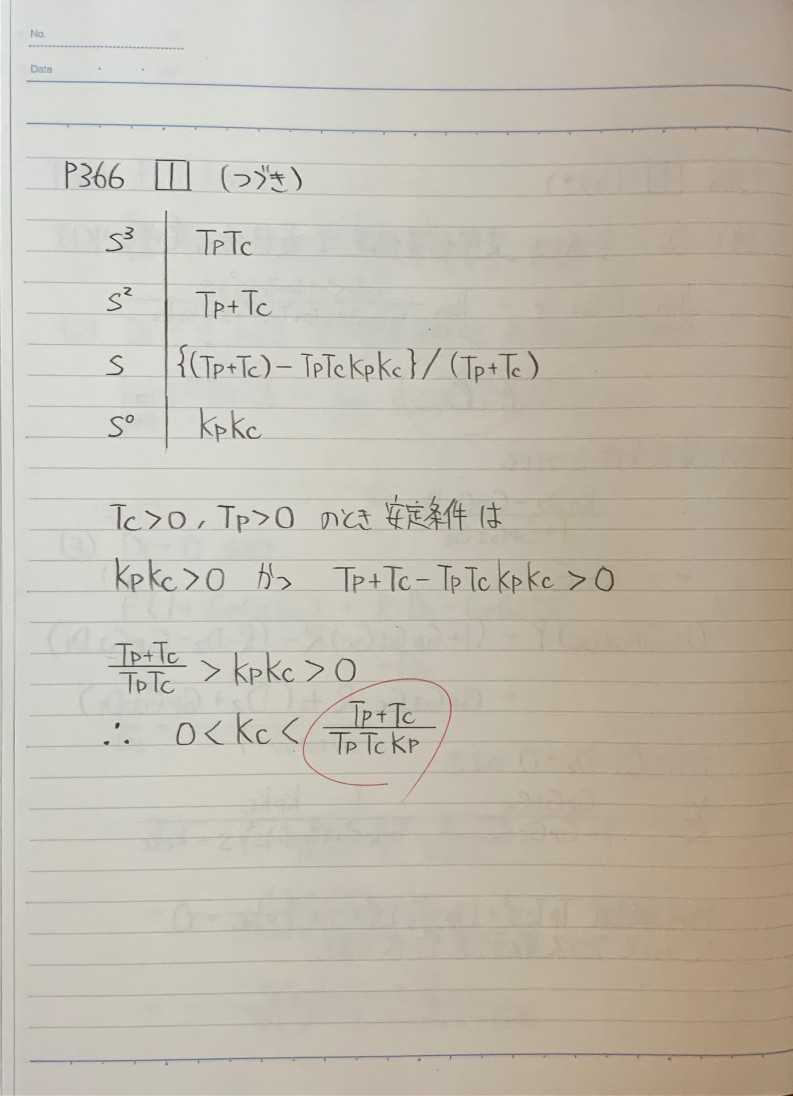 No.
Date
P366 1 (つづき)
S³ TpTc
S² Tp+Tc
S {(Tp+Tc)-TpTcKpKc}/(Tp+Tc)
S⁰ KpKc
Tc>0, Tp>0 のとき 安定条件は
KpKc>0 かつ Tp+Tc-TpTcKpKc>0
(Tp+Tc)/(TpTc) > KpKc > 0
∴ 0<Kc< (Tp+Tc)/(TpTcKp)